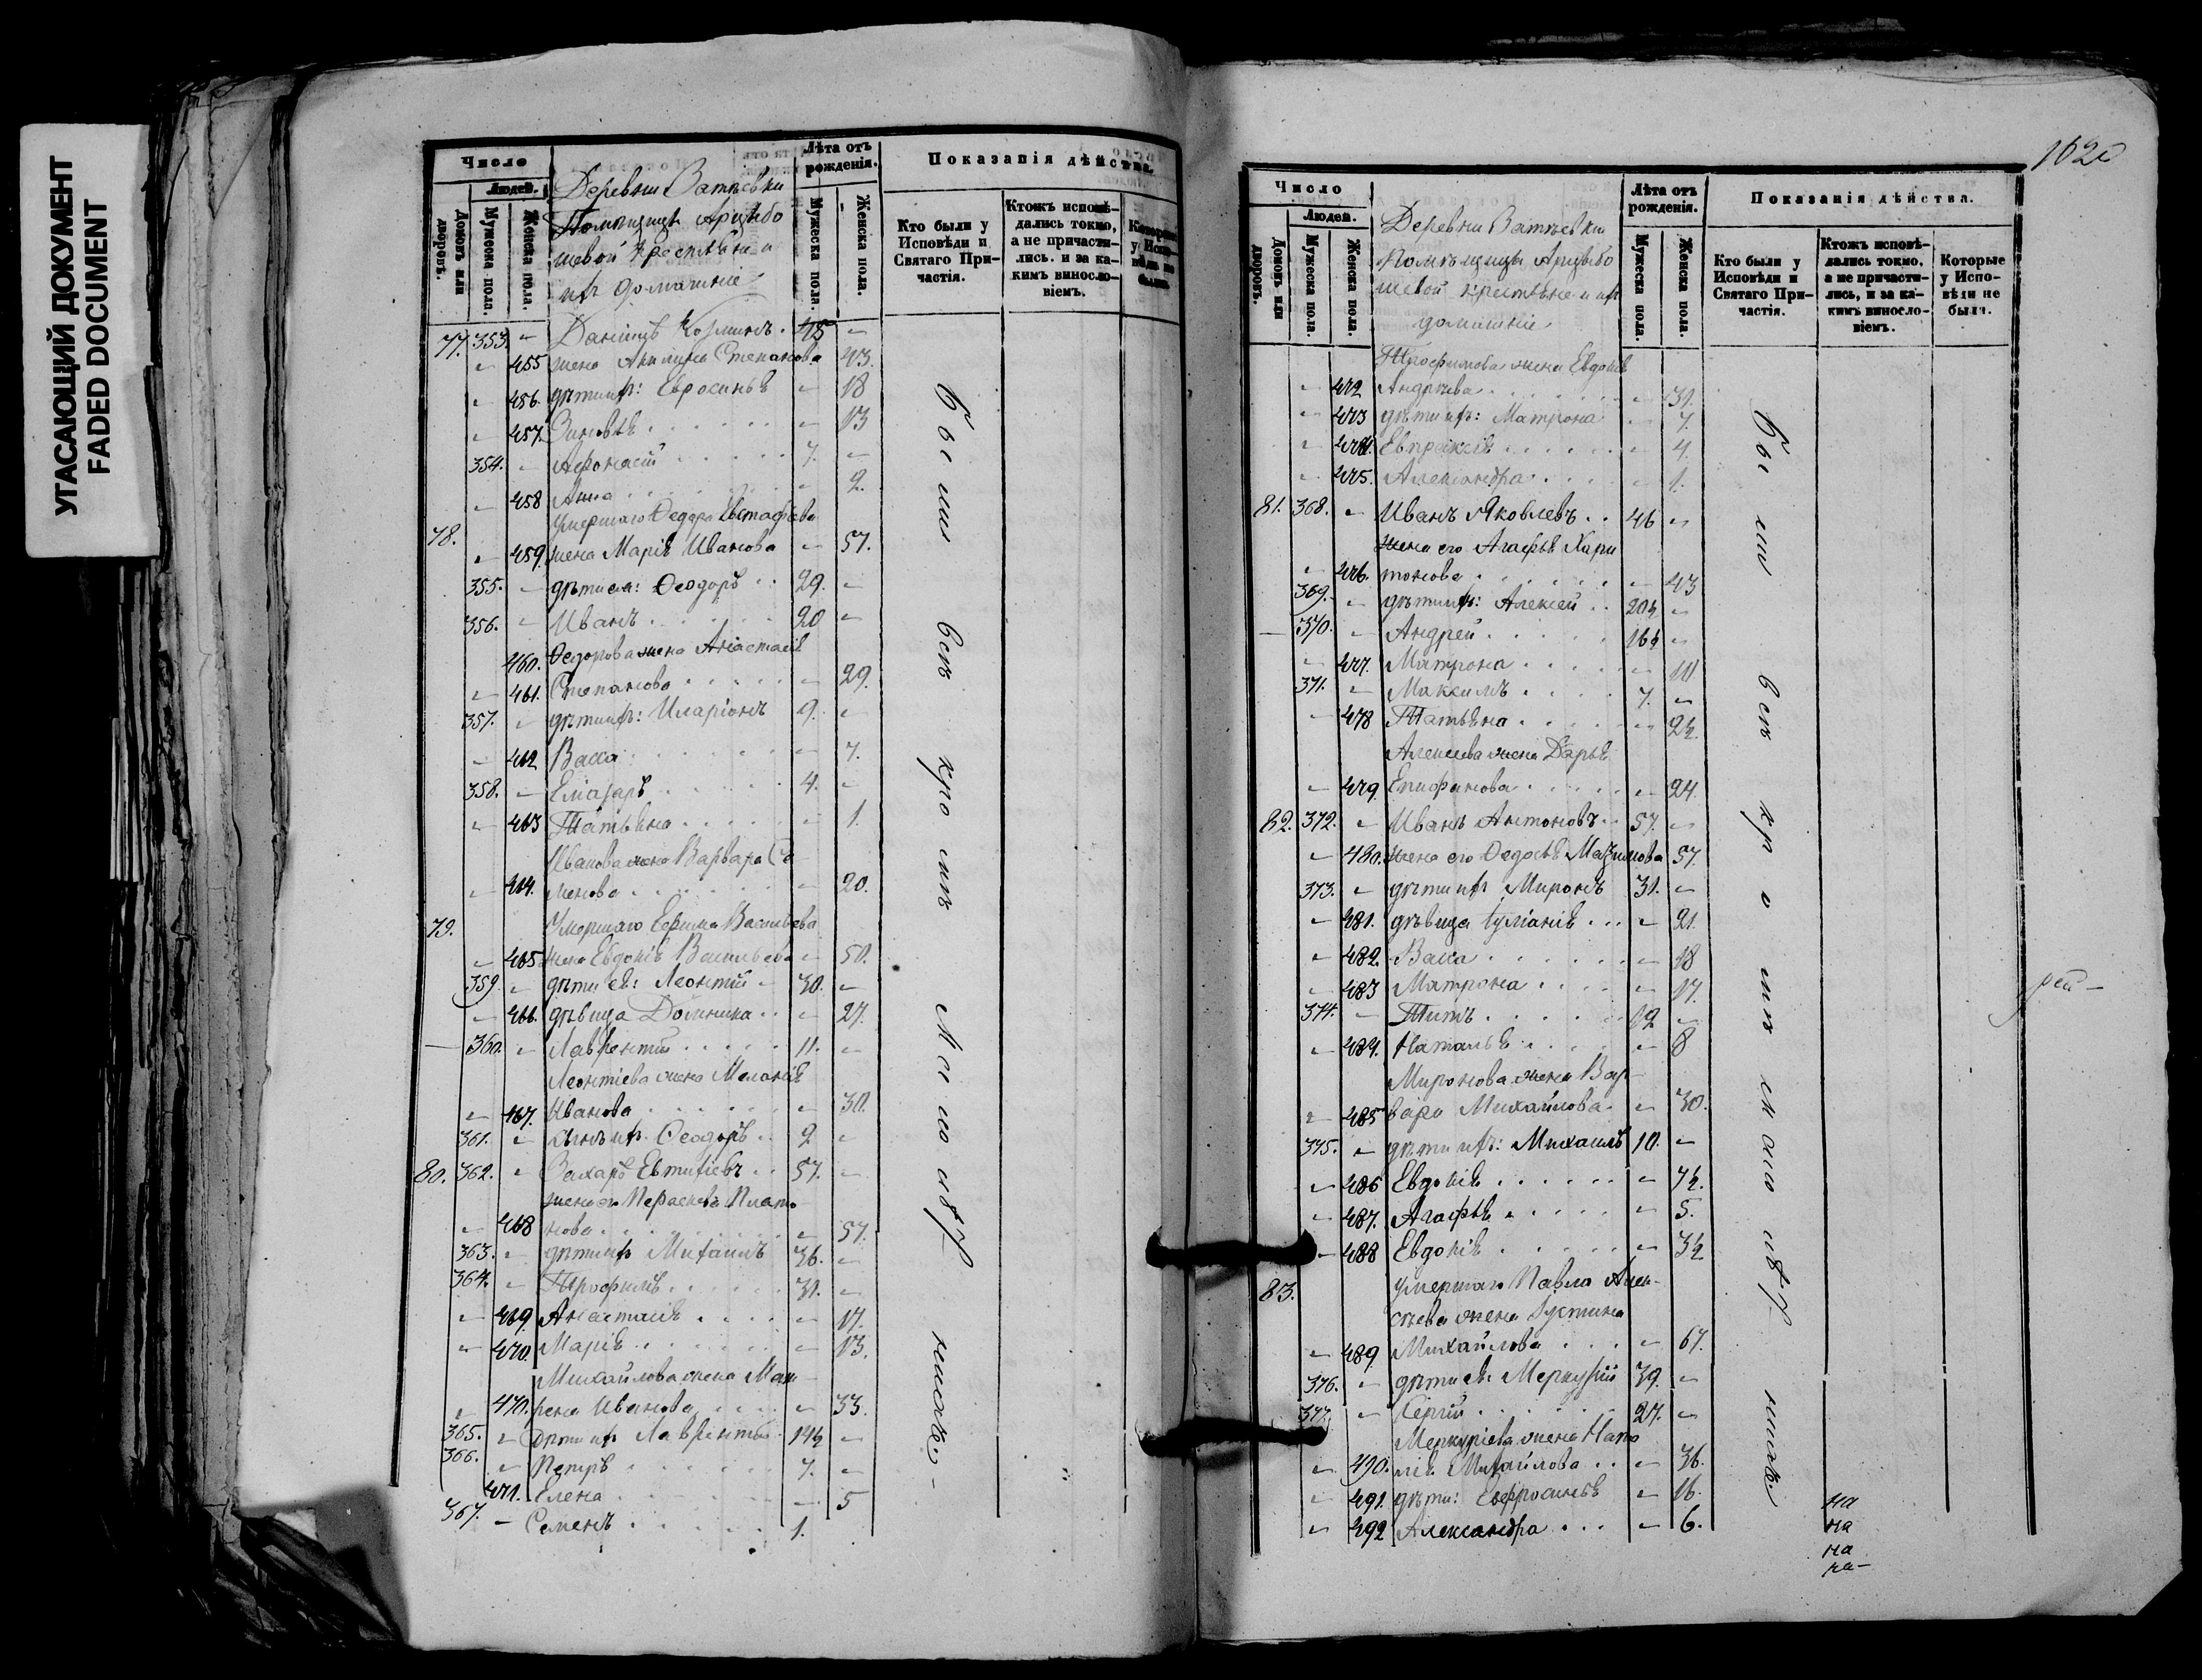 УГАСАЮЩИЙ ДОКУМЕНТ
FADED DOCUMENT
Число
Людей.
Домовъ или дворовъ.
Мужеска пола.
Женска пола.
Деревни Ватѣевки
Помѣщицы Арцыбо
шевой крестьяне и
ихъ домашніе
Лѣта отъ рожденія.
Мужеска пола.
Женска пола.
Показанія дѣйства.
Кто были у Исповѣди и Святаго Причастія.
Ктожъ исповѣдались токмо, а не причастились. и за какимъ винословіемъ.
77. 353. - Даніилъ Козминъ . 45 -
- 455 жена Акилина Степанова 43.
- 456. дѣти ихъ: Евросинья - 18
- 457. Зиновья - 13
354. - Афонасій 7. -
- 458 Анна - 2.
78. Умершаго Федора Евстафіева
- 459. жена Марія Иванова - 57.
355. - дѣти ея: Феодоръ 29. -
356. - Иванъ 20 -
460. Федорова жена Анастасія
- 461. Степанова - 29.
357. - дѣти ихъ: Иларіонъ 9. -
- 462 Васса - 7.
358. - Елазаръ 4. -
- 463 Татьяна - 1.
Иванова жена Варвара Се
- 464. менова - 20.
79. Умершаго Ефима Васильева
- 465 жена Евдокія Васильева - 50.
359. - дѣти ея: Леонтій - 30. -
- 466. дѣвица Домника - 27.
360. - Лаврентій 11. -
Леонтіева жена Меланія
- 467. Иванова - 30.
361. - сынъ ихъ Феодоръ 2 -
80. 362. - Захаръ Евтихіевъ 57. -
жена его Параскева Плато
- 468 нова - 57.
363. - дѣти ихъ Михаилъ 36. -
364. - Трофимъ 31. -
- 469. Анастасія - 17.
- 470. Марія - 13.
Михайлова жена Мат
- 470. рена Иванова - 33.
365. - Дѣти ихъ Лаврентій 14½ -
366. - Петръ 7. -
471. Елена - 5
367. - Семенъ 1.
Были всѣ кромѣ малолѣтныхъ.
1620
Число
Людей.
Домовъ или дворовъ.
Мужеска пола.
Женска пола.
Деревни Ватѣевки
Помѣщицы Арцыбо
шевой крестьяне и ихъ
домашніе
Лѣта отъ рожденія.
Мужеска пола.
Женска пола.
Показанія дѣйства.
Кто были у Исповѣди и Святаго Причастія.
Ктожъ исповѣдались токмо, а не причастились, и за какимъ винословіемъ.
Которые у Исповѣди не были.
Трофимова жена Евдокія
- 472 Андреева - 31.
- 473 дѣти ихъ: Матрона - 7.
- 474. Евпраксія - 4.
- 475. Александра - 1.
81. 368. - Иванъ Яковлевъ 46 -
жена его Агафья Хари
- 476. тонова - 43
369. - дѣти ихъ: Алексей 20½ -
370. - Андрей 16½ -
- 477. Матрона - 10
371. - Максимъ 7. -
- 478 Татьяна - 2½.
Алексеева жена Дарья
- 479. Епифанова - 24.
82. 372. - Иванъ Антоновъ 57. -
- 480. жена его Федосья Мазимова 57.
373. - дѣти ихъ Миронъ 31. -
- 481. дѣвица Іуліанія - 21.
- 482. Васса - 18
- 483 Матрона - 17.
374. - Титъ 12 -
- 484. Наталья - 8
Миронова жена Вар
- 485 вара Михайлова - 30.
375. - дѣти ихъ: Михаилъ 10. -
- 486 Евдокія - 7½.
- 487. Агафья - 5.
- 488 Евдокія - 3½
83. Умершаго Павла Алек-
сѣева жена Іустина
- 489. Михайлова - 67.
376. - дѣти ея: Меркурій 39. -
377. - Сергій 27. -
Меркуріева жена Ната
- 490. лія Михайлова - 36.
- 491. дѣти: Евфросинья - 16.
- 492 Александра - 6.
Были всѣ кромѣ малолѣтныхъ.
рей -
на
на
на
на-